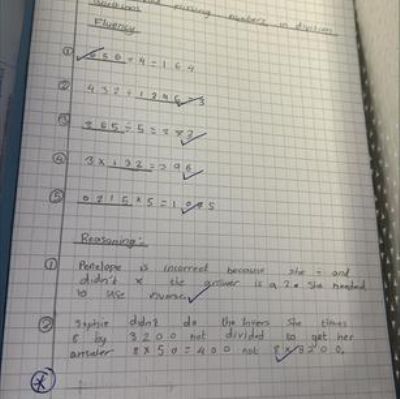 missing numbers in division
Fluency
① 656 ÷ 4 = 164
② 432 = 1296 ÷ 3
③ 365 ÷ 5 = 73
④ 3 × 132 = 396
⑤ 0215 × 5 = 1075
Reasoning:
① Penelope is incorrect because she = and
didn't × the answer is a 2. She needed
to use inverse.
② Sophie didn't do the invers she times
8 by 3200 not divided to get her
answer 8 × 50 = 400 not 8 × 3200.